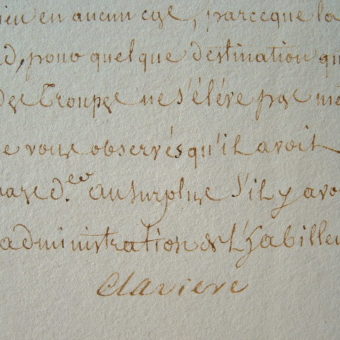 en aucun cas, parceque la
d, pour quelque destination qu
des Troupes ne s'élève pas
e vous observés qu'il avoit
au surplus s'il y avo
administration de L'habillem
Claviere